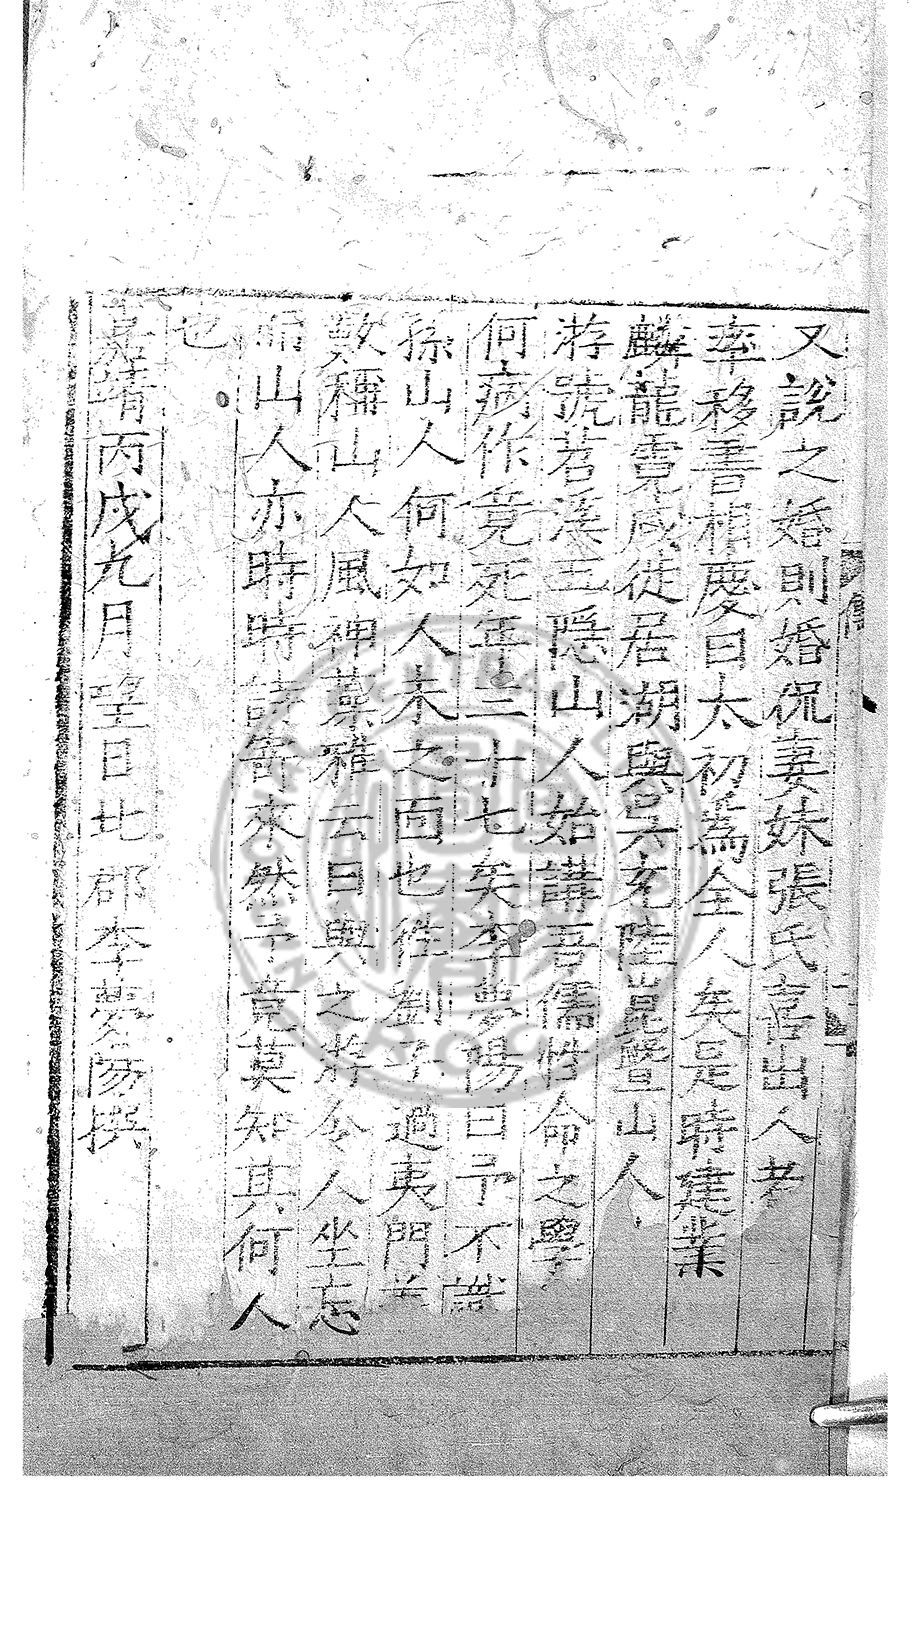 又說之婚則婚侃妻妹張氏喜出入者
牽移書相慶曰太初為全人矣是時建業
麟龍霓咸徙居湖與吳充陸崑暨山人
游號苕溪五隱山人始講吾儒性命之學
何病作竟死年三十七矣李夢陽曰予不識
孫山人何如人未之面也徃劉子過夷門盖
數稱山人風神藻雅云日與之游令人坐忘
山人亦時時詩寄來然予竟莫知其何人
也
嘉靖丙戌九月望日北郡李夢陽撰